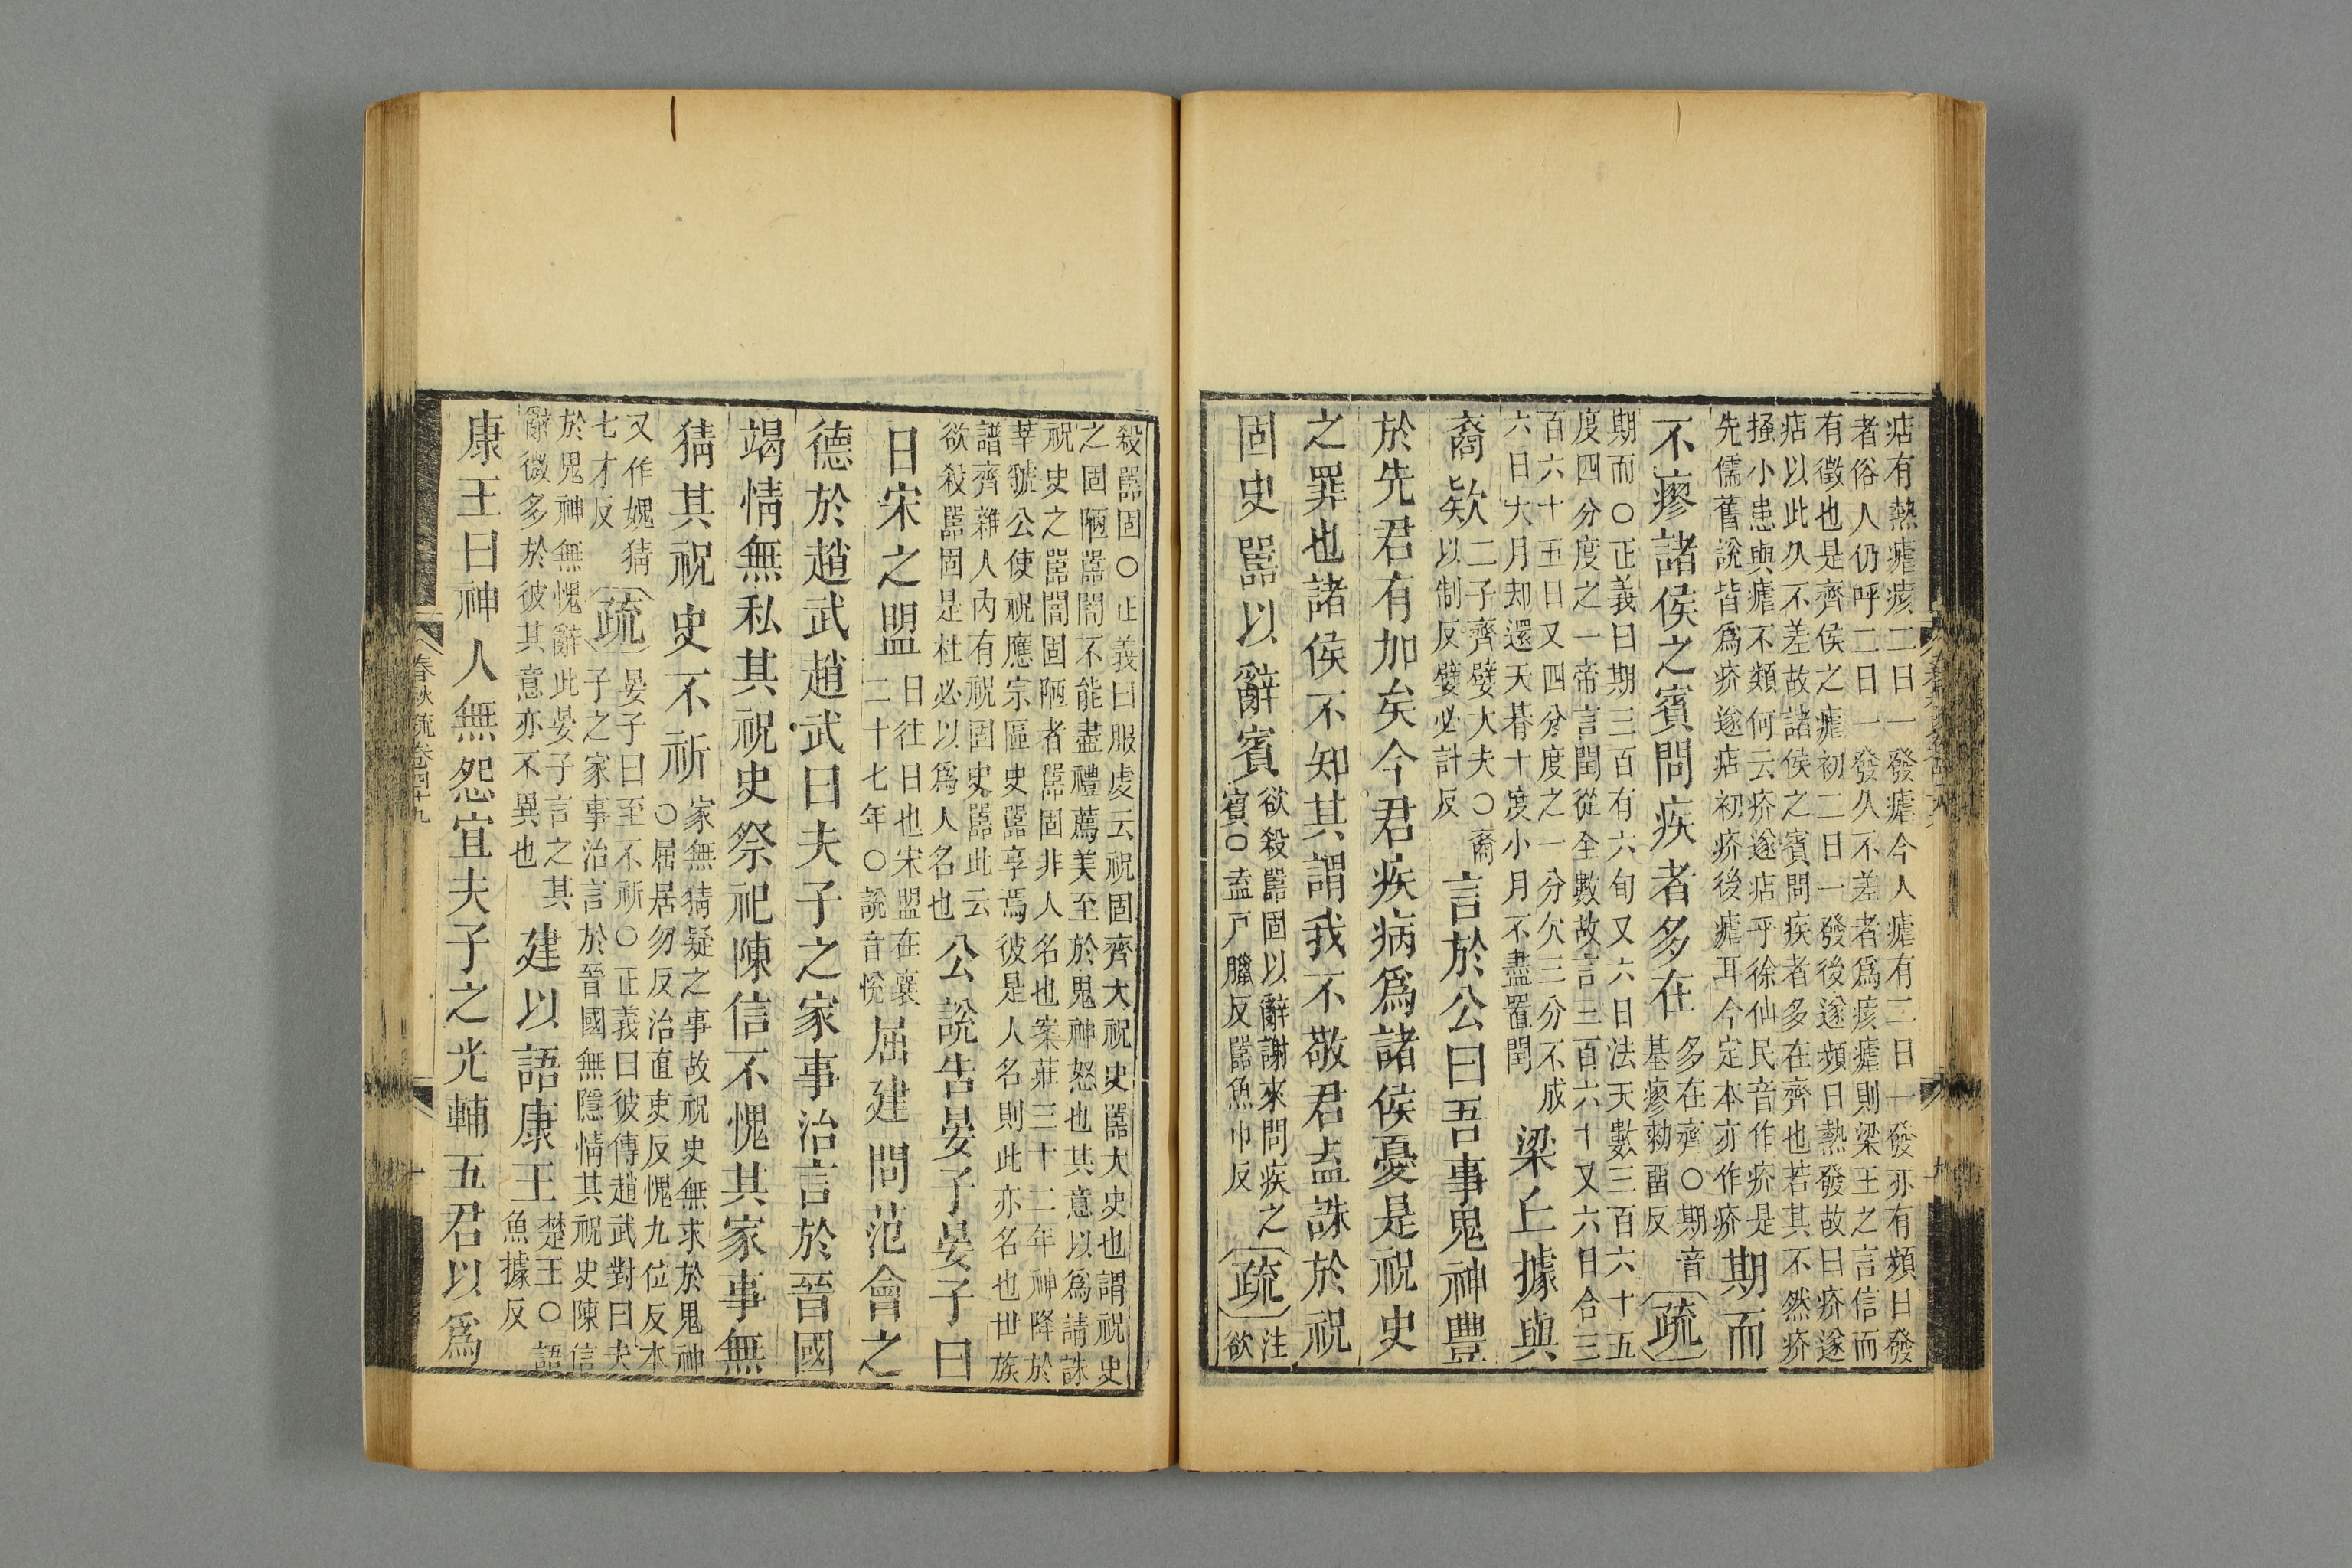 痁有熱瘧痎二日一發瘧今人瘧有二日一發亦有頻日發
者俗人仍呼二日一發久不差者爲痎瘧則梁王之言信而
有徵也是齊侯之瘧初二日一發後遂頻日熱發故曰疥遂
痁以此久不差故諸侯之賓問疾者多在齊也若其不然疥
搔小患與瘧不類何云疥遂痁乎徐仙民音作疥是
先儒舊說皆爲疥遂痁初疥後瘧耳今定本亦作疥
期而
不瘳諸侯之賓問疾者多在
多在齊○期音
基瘳勑畱反
疏
期而○正義曰期三百有六旬又六日法天數三百六十五
度四分度之一帝言閏從全數故言三百六十又六日合三
百六十五日又四分度之一分欠三分不成
六日大月却還天朞十度小月不盡置閏
梁丘據與
裔欵
二子齊嬖大夫○裔
以制反嬖必計反
言於公曰吾事鬼神豐
於先君有加矣今君疾病爲諸侯憂是祝史
之罪也諸侯不知其謂我不敬君盍誅於祝
固史嚚以辭賓
欲殺嚚固以辭謝來問疾之
賓○盍戸臘反嚚魚巾反
疏
注
欲
殺嚚固○正義曰服虔云祝固齊大祝史嚚大史也謂祝史
之固陋嚚闇不能盡禮薦美至於鬼神怒也其意以爲請誅
祝史之嚚闇固陋者嚚固非人名也案莊三十二年神降於
莘虢公使祝應宗區史嚚享焉彼是人名則此亦名也世族
譜齊雜人內有祝固史嚚此云
欲殺嚚固是杜必以爲人名也
公說告晏子晏子曰
日宋之盟
日往日也宋盟在襄
二十七年○說音悅
屈建問范會之
德於趙武趙武曰夫子之家事治言於晉國
竭情無私其祝史祭祀陳信不愧其家事無
猜其祝史不祈
家無猜疑之事故祝史無求於鬼神
○屈居勿反治直吏反愧九位反本
又作媿猜
七才反
疏
晏子曰至不祈○正義曰彼傳趙武對曰夫
子之家事治言於晉國無隱情其祝史陳信
於鬼神無愧辭此晏子言之其
辭微多於彼其意亦不異也
建以語康王
楚王○語
魚據反
康王曰神人無怨宜夫子之光輔五君以爲
春秋疏卷四十九
十